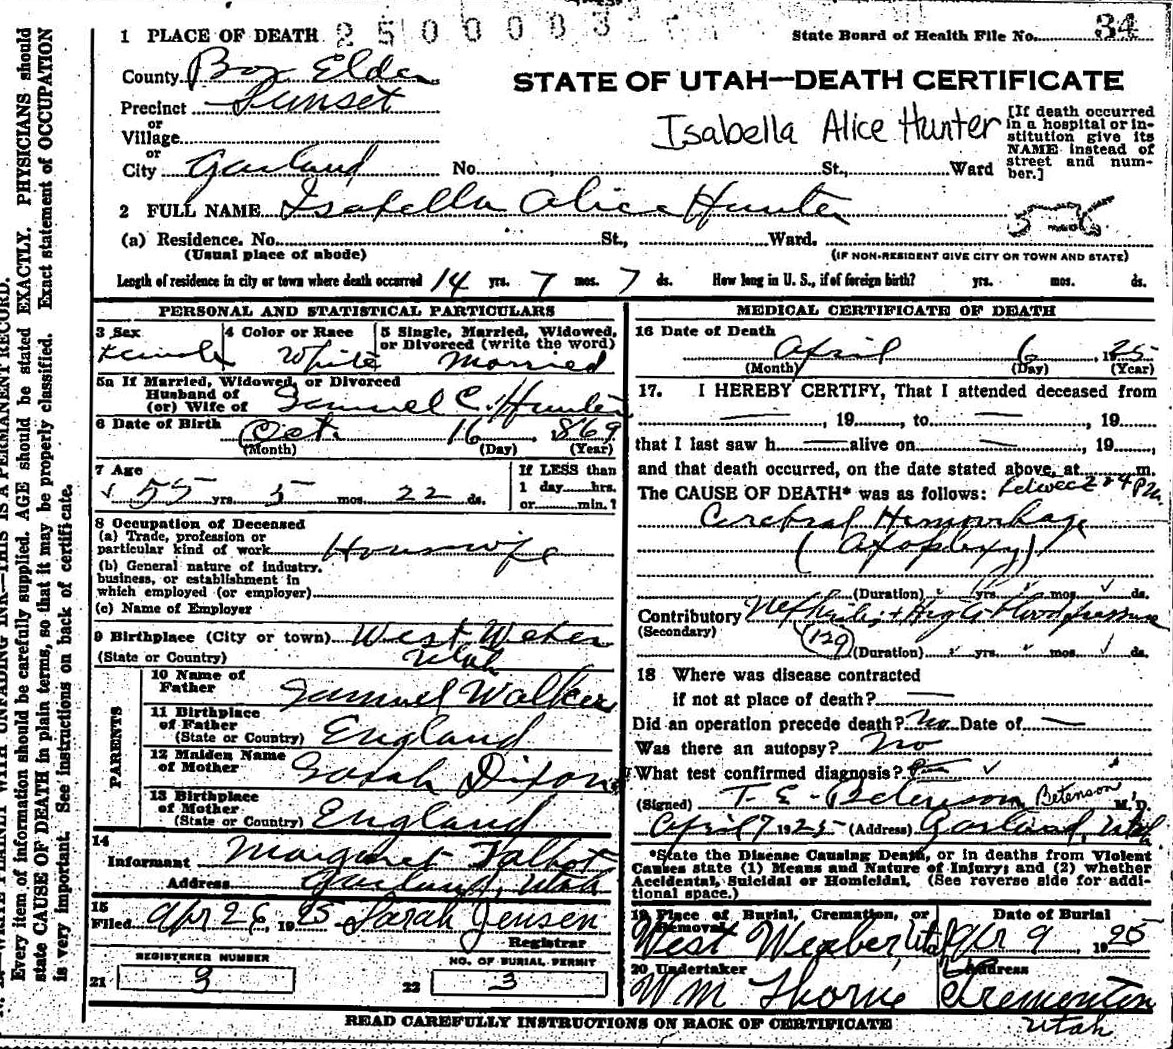 1 PLACE OF DEATH 2500003
State Board of Health File No. 34
County Box Elder
STATE OF UTAH—DEATH CERTIFICATE
Precinct Sunset
or
Village
or
City Garland No. St., Ward
Isabella Alice Hunter
[If death occurred
in a hospital or in-
stitution give its
NAME instead of
street and num-
ber.]
2 FULL NAME Isabella Alice Hunter
(a) Residence. No. St., Ward.
(Usual place of abode)
(IF NON-RESIDENT GIVE CITY OR TOWN AND STATE)
Length of residence in city or town where death occurred 14 yrs. 7 mos. 7 ds. How long in U. S., if of foreign birth? yrs. mos. ds.
PERSONAL AND STATISTICAL PARTICULARS
3 Sex Female
4 Color or Race White
5 Single, Married, Widowed,
or Divorced (write the word)
Married
5a If Married, Widowed, or Divorced
Husband of
(or) Wife of Samuel C. Hunter
6 Date of Birth Oct. 16, 1869
(Month) (Day) (Year)
7 Age 55 yrs. 5 mos. 22 ds.
If LESS than
1 day hrs.
or min.?
8 Occupation of Deceased
(a) Trade, profession or
particular kind of work Housewife
(b) General nature of industry,
business, or establishment in
which employed (or employer)
(c) Name of Employer
9 Birthplace (City or town) West Weber
(State or Country) Utah
PARENTS
10 Name of
Father Samuel Walker
11 Birthplace
of Father
(State or Country) England
12 Maiden Name
of Mother Sarah Dixon
13 Birthplace
of Mother
(State or Country) England
14
Informant Margaret Talbot
Address Garland, Utah
15
Filed Apr 26, 1925 Sarah Jensen
Registrar
REGISTERED NUMBER
21 3
NO. OF BURIAL PERMIT
22 3
MEDICAL CERTIFICATE OF DEATH
16 Date of Death
April 6, 1925
(Month) (Day) (Year)
17. I HEREBY CERTIFY, That I attended deceased from
— , 19 , to — , 19
that I last saw h — alive on — , 19 ,
and that death occurred, on the date stated above, at m.
The CAUSE OF DEATH* was as follows: between 2 & 4 P.M.
Cerebral Hemorrhage
(Apoplexy)
(Duration) yrs. mos. ds.
Contributory Nephritis + High blood pressure
(Secondary)
(129) (Duration) yrs. mos. ds.
18 Where was disease contracted
if not at place of death? —
Did an operation precede death? No Date of —
Was there an autopsy? No
What test confirmed diagnosis?
(Signed) T. E. Betenson Betenson M.D.
April 7 1925 (Address) Garland, Utah
*State the Disease Causing Death, or in deaths from Violent
Causes state (1) Means and Nature of Injury; and (2) whether
Accidental, Suicidal or Homicidal. (See reverse side for addi-
tional space.)
19 Place of Burial, Cremation, or
Removal
West Weber, Utah
Date of Burial
Apr 9, 1925
20 Undertaker
Wm Thorne
Address
Tremonton
Utah
READ CAREFULLY INSTRUCTIONS ON BACK OF CERTIFICATE
N. B.—WRITE PLAINLY WITH UNFADING INK—THIS IS A PERMANENT RECORD.
Every item of information should be carefully supplied. AGE should be stated EXACTLY. PHYSICIANS should
state CAUSE OF DEATH in plain terms, so that it may be properly classified. Exact statement of OCCUPATION
is very important. See instructions on back of certificate.